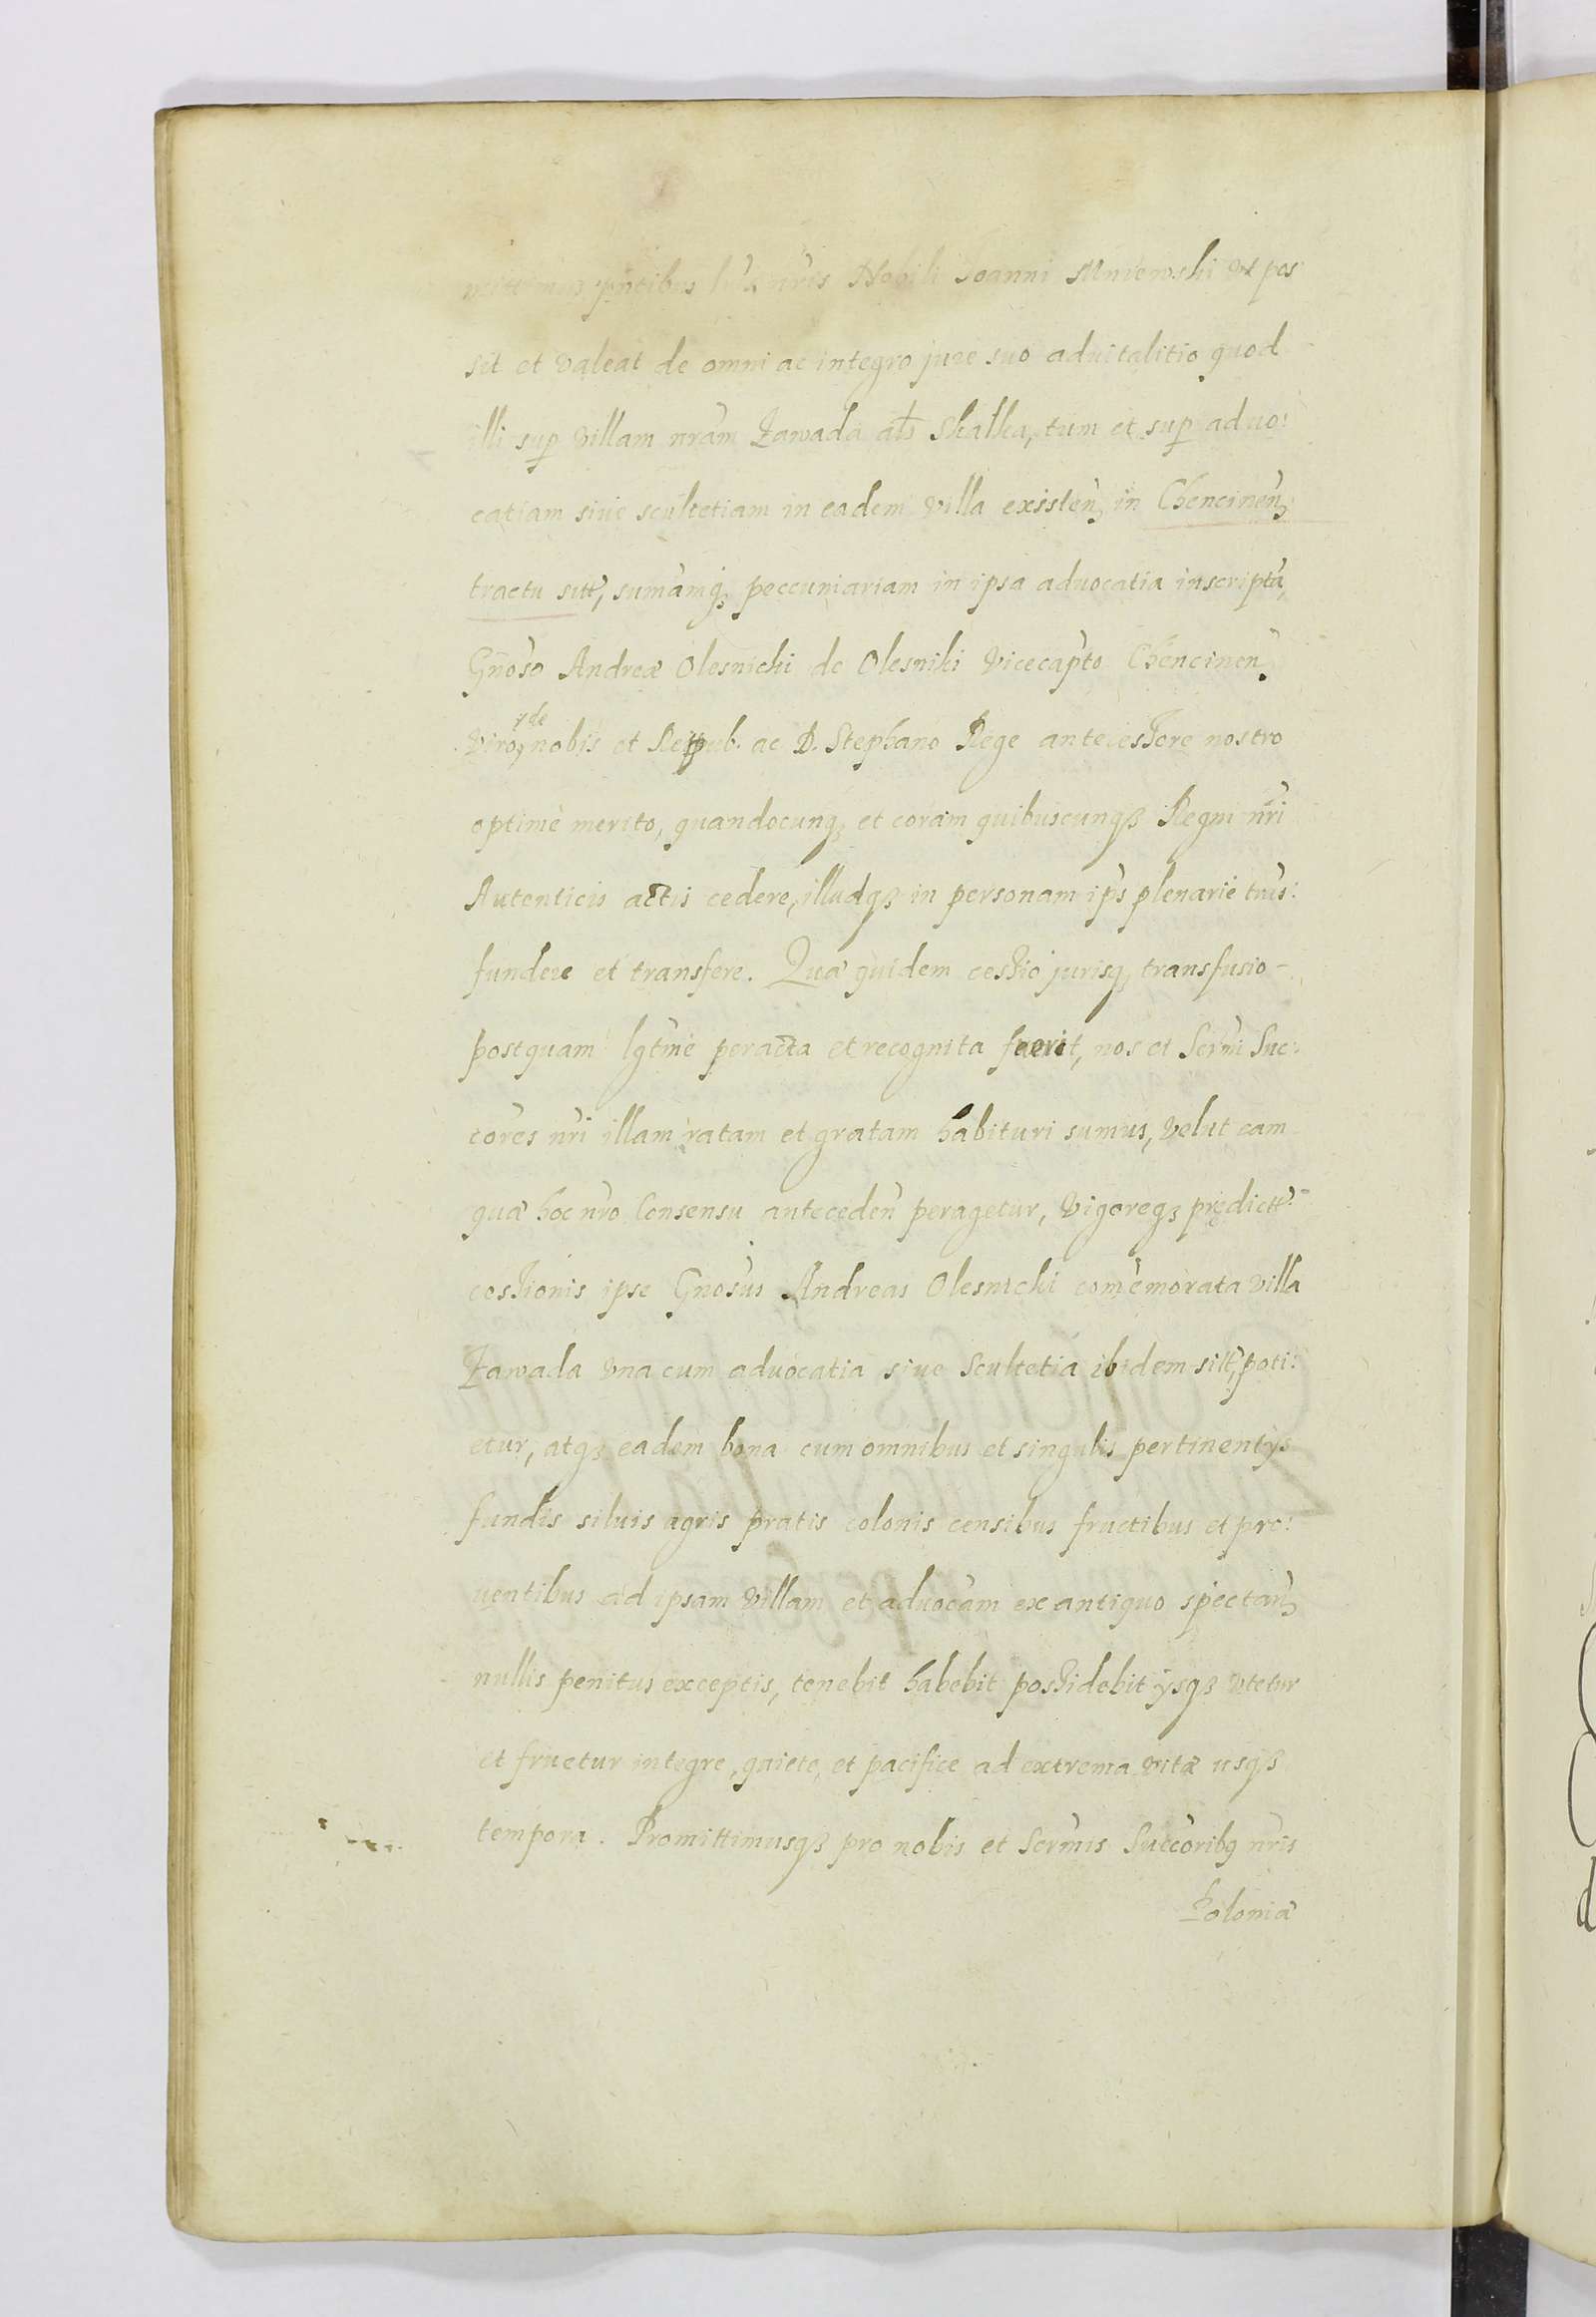 mittimus pntibus lris nris Nobili Joanni Mniewski vt pos
sit et valeat de omni ac integro jure suo aduitalitio quod
illi sup villam nram Zawada als Skalka, tum et sup aduo:
catiam siue scultetiam in eadem villa existen, in Chencinen,
tractu sitt, sumamq, peccuniariam in ipsa aduocatia inscripta,
Gnoso Andreæ Olesnicki de Olesniki Vicecapto Chencinen,
Viro, de nobis et Reipub. ac D. Stephano Rege antecessore nostro
optimè merito, quandocunq, et coram quibuscunqȝ Regni nri
Autenticis actis cedere, illudqȝ in personam ips plenariè tns:
fundere et transfere. Quæ quidem cessio jurisq, transfusio-
postquam lgtme peracta et recognita fuerit, nos et Sermi Suc:
cores nri illam ratam et gratam habituri sumus, velut eam
quæ hoc nro Consensu anteceden peragetur, vigoreqȝ prędictt
cessionis ipse Gnosus Andreas Olesnicki comemorata villa
Zawada vna cum aduocatia siue Scultetia ibidem sitt, poti:
etur, atqȝ eadem bona cum omnibus et singulis pertinentÿs
fundis siluis agris pratis colonis censibus fructibus et pro:
uentibus ad ipsam villam et aduocam ex antiquo spectan,
nullis penitus exceptis, tenebit habebit possidebit ÿsqȝ vtetur
et fruetur integre, quiete, et pacifice ad extrema vitæ usqȝ
tempora. Promittimusqȝ pro nobis et Sermis Succoribȝ nris
Poloniæ